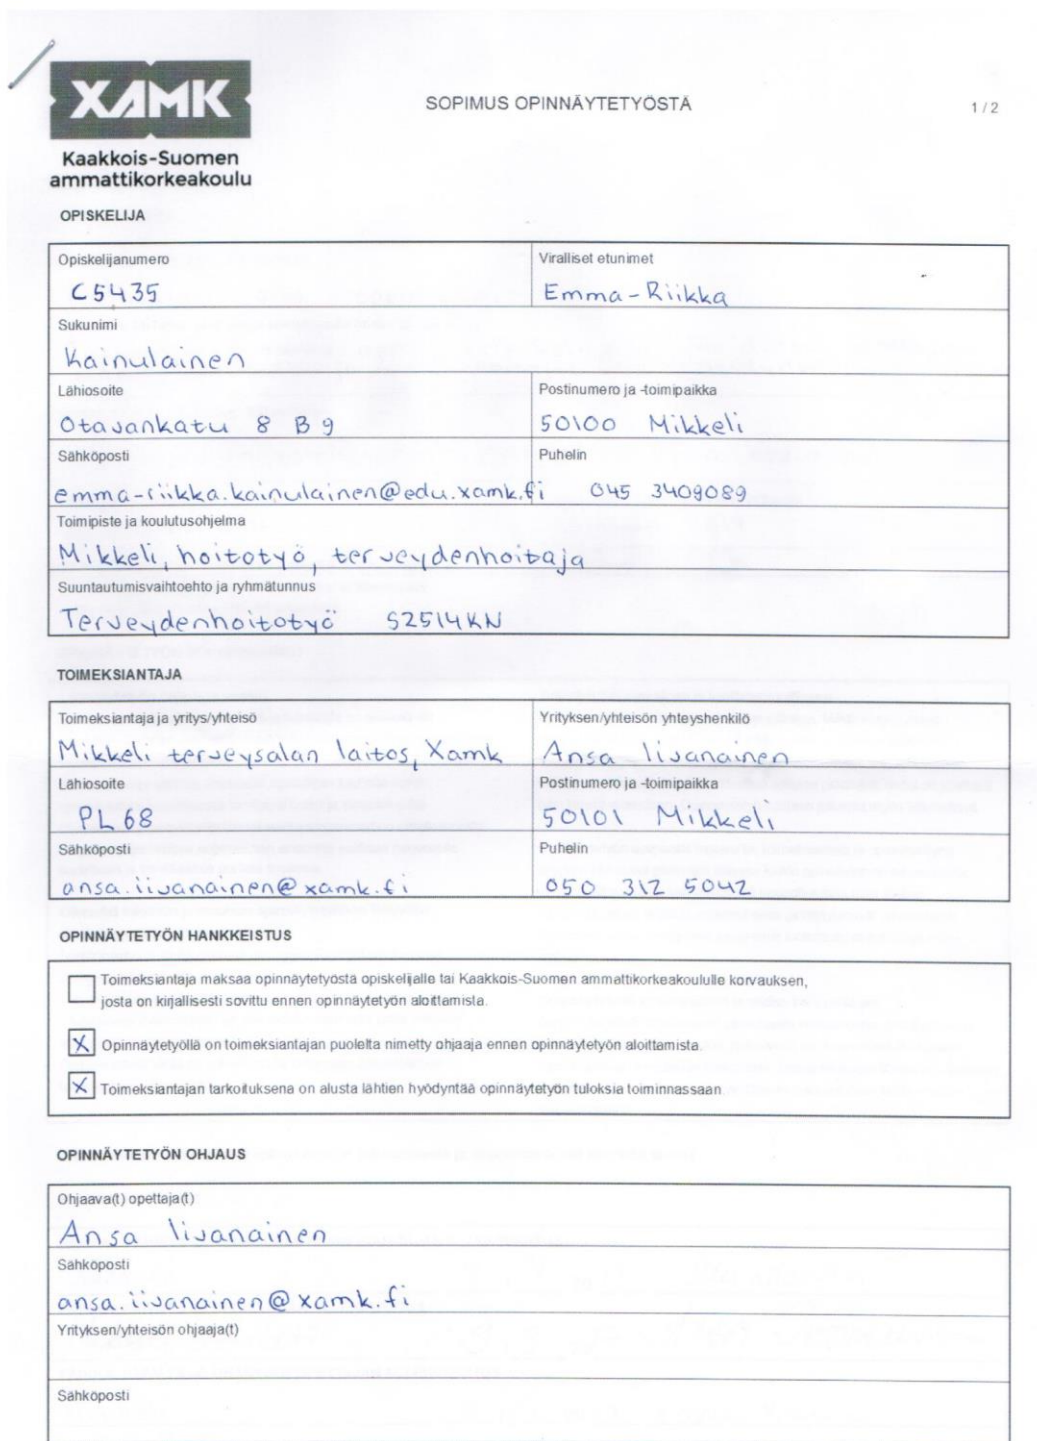 XAMK
SOPIMUS OPINNÄYTETYÖSTÄ
1 / 2
Kaakkois-Suomen
ammattikorkeakoulu
OPISKELIJA
Opiskelijanumero Viralliset etunimet
C5435 Emma-Riikka
Sukunimi
Kainulainen
Lähiosoite Postinumero ja -toimipaikka
Otavankatu 8 B 9 50100 Mikkeli
Sähköposti Puhelin
emma-riikka.kainulainen@edu.xamk.fi 045 3409089
Toimipiste ja koulutusohjelma
Mikkeli, hoitotyö, terveydenhoitaja
Suuntautumisvaihtoehto ja ryhmätunnus
Terveydenhoitotyö S2514KN
TOIMEKSIANTAJA
Toimeksiantaja ja yritys/yhteisö Yrityksen/yhteisön yhteyshenkilö
Mikkeli terveysalan laitos, Xamk Ansa Iivanainen
Lähiosoite Postinumero ja -toimipaikka
PL 68 50101 Mikkeli
Sähköposti Puhelin
ansa.iivanainen@xamk.fi 050 312 5042
OPINNÄYTETYÖN HANKKEISTUS
Toimeksiantaja maksaa opinnäytetyöstä opiskelijalle tai Kaakkois-Suomen ammattikorkeakoululle korvauksen,
josta on kirjallisesti sovittu ennen opinnäytetyön aloittamista.
X Opinnäytetyöllä on toimeksiantajan puolelta nimetty ohjaaja ennen opinnäytetyön aloittamista.
X Toimeksiantajan tarkoituksena on alusta lähtien hyödyntää opinnäytetyön tuloksia toiminnassaan.
OPINNÄYTETYÖN OHJAUS
Ohjaava(t) opettaja(t)
Ansa Iivanainen
Sähköposti
ansa.iivanainen@xamk.fi
Yrityksen/yhteisön ohjaaja(t)
Sähköposti